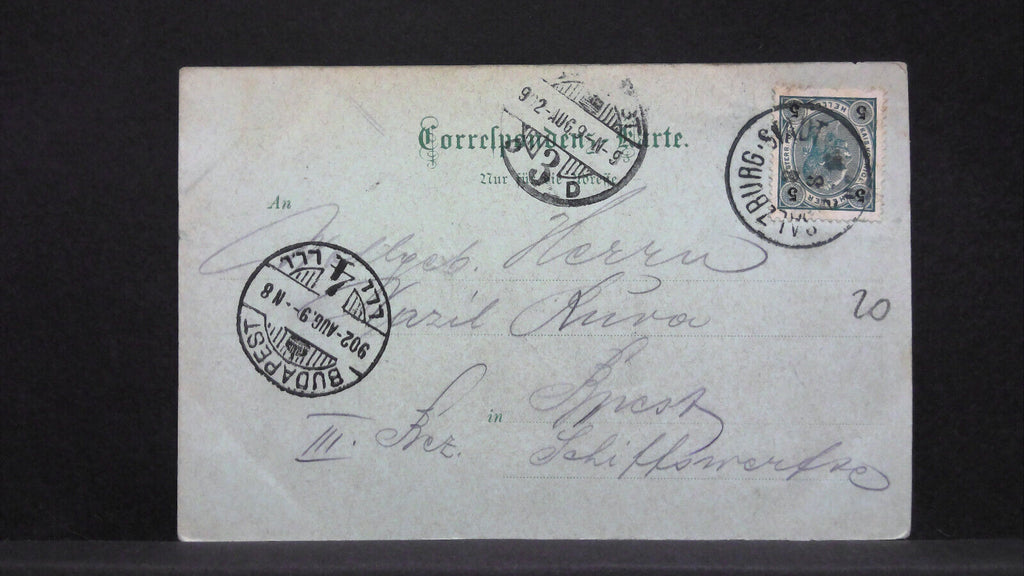 Correspondenz-Karte.
Nur für die Adresse
An
Herrn
Kuva
in Bpest
III. Bez. Schiffswerfte
20
902-AUG.9-N-6
3
D
SALZBURG-STADT
5 5
5 5
HELLER
BUDAPEST
902-AUG.9-N8